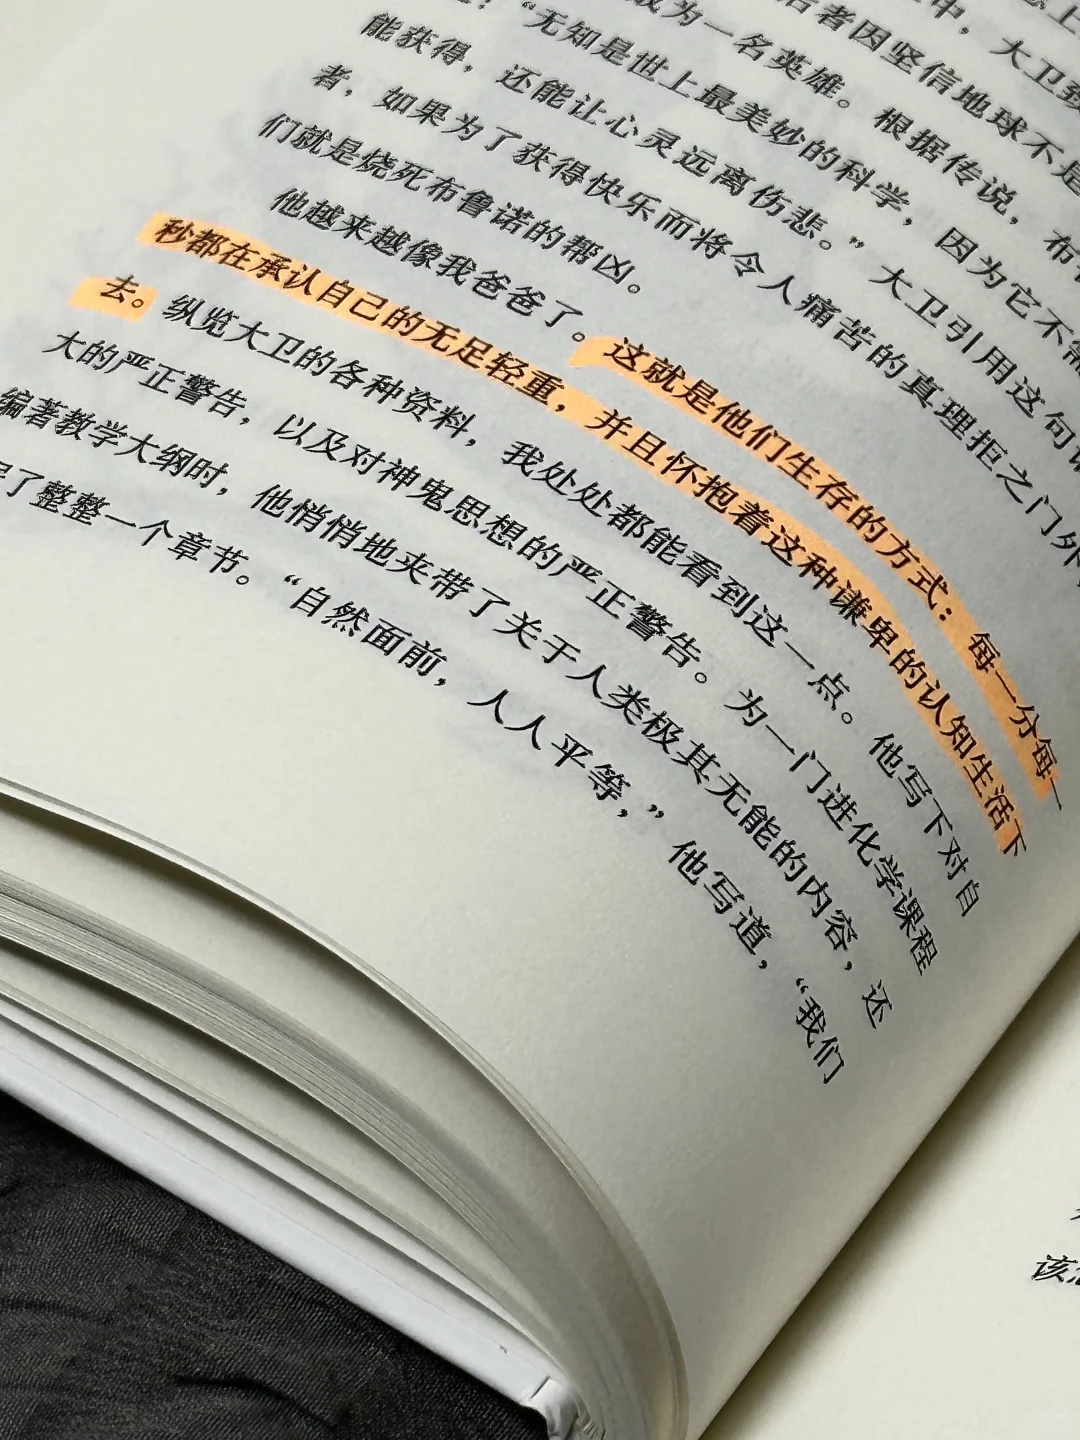 上
中，大卫致
者因坚信地球不是
成为一名英雄。根据传说，布
“无知是世上最美妙的科学，因为它不需
能获得，还能让心灵远离伤悲。”大卫引用这句
者，如果为了获得快乐而将令人痛苦的真理拒之门外，
们就是烧死布鲁诺的帮凶。
他越来越像我爸爸了。这就是他们生存的方式：每一分每一
秒都在承认自己的无足轻重，并且怀抱着这种谦卑的认知生活下
去。纵览大卫的各种资料，我处处都能看到这一点。他写下对自
大的严正警告，以及对神鬼思想的严正警告。为一门进化学课程
编著教学大纲时，他悄悄地夹带了关于人类极其无能的内容，还
了整整一个章节。“自然面前，人人平等，”他写道，“我们
该